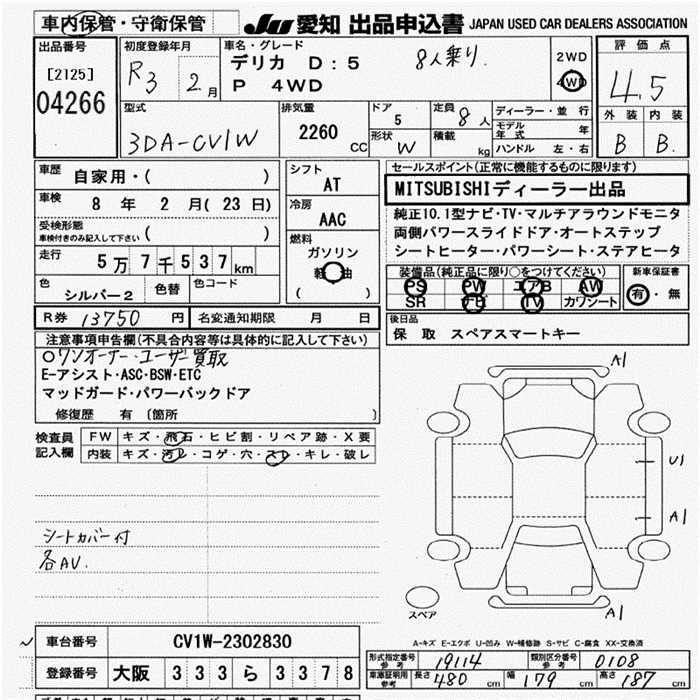 車内保管・守衛保管 JU 愛知 出品申込書 JAPAN USED CAR DEALERS ASSOCIATION
出品番号 [2125] 04266
初度登録年月 R3 2月
車名・グレード デリカ D:5 8人乗り.
P 4WD
2WD 4WD
評価点 4.5
外装 内装
B B.
型式 3DA-CV1W
排気量 2260 CC
ドア 5
形状 W
定員 8人
積載 kg
ディーラー・並行
モデル年式 年
ハンドル 左・右
車歴 自家用・( )
車検 8年 2月(23日)
受検形態
車検付きのみ記入して下さい ( )
走行 5万7千537km
色 シルバー2 色替 色コード
シフト AT
冷房 AAC
燃料 ガソリン
軽油
( )
セールスポイント(正常に機能するものに限ります)
MITSUBISHIディーラー出品
純正10.1型ナビ・TV・マルチアラウンドモニタ
両側パワースライドドア・オートステップ
シートヒーター・パワーシート・ステアヒータ
装備品(純正品に限り○をつけてください)
PS PW エアB AW
SR ナビ TV カワシート
新車保証書
有・無
R券 13750 円 名変通知期限 月 日
後日品
保 取 スペアスマートキー
注意事項申告欄(不具合内容等は具体的に記入して下さい)
○ワンオーナー・ユーザー買取
E-アシスト・ASC・BSW・ETC
マッドガード・パワーバックドア
修復歴 有 〔箇所 〕
検査員記入欄
FW キズ・飛石・ヒビ割・リペア跡・X要
内装 キズ・汚レ・コゲ・穴・スレ・キレ・破レ
シートカバー付
各AV.
A1
U1
A1
A1
スペア
A-キズ E-エクボ U-凹み W-補修跡 S-サビ C-腐食 XX-交換済
車台番号 CV1W-2302830
登録番号 大阪 333 ら 3378
型式指定番号 参考 19114 類別区分番号 参考 0108
車庫証明用 参考 長さ 480 cm 幅 179 cm 高さ 187 cm